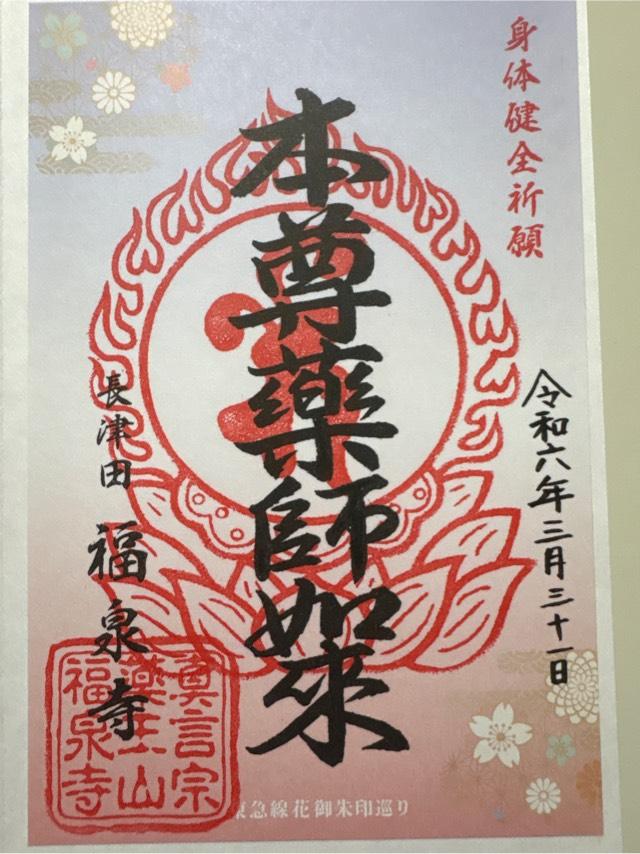 身体健全祈願
令和六年三月三十一日
本尊藥師如來
長津田 福泉寺
真言宗
藥王山
福泉寺
東急線花御朱印巡り